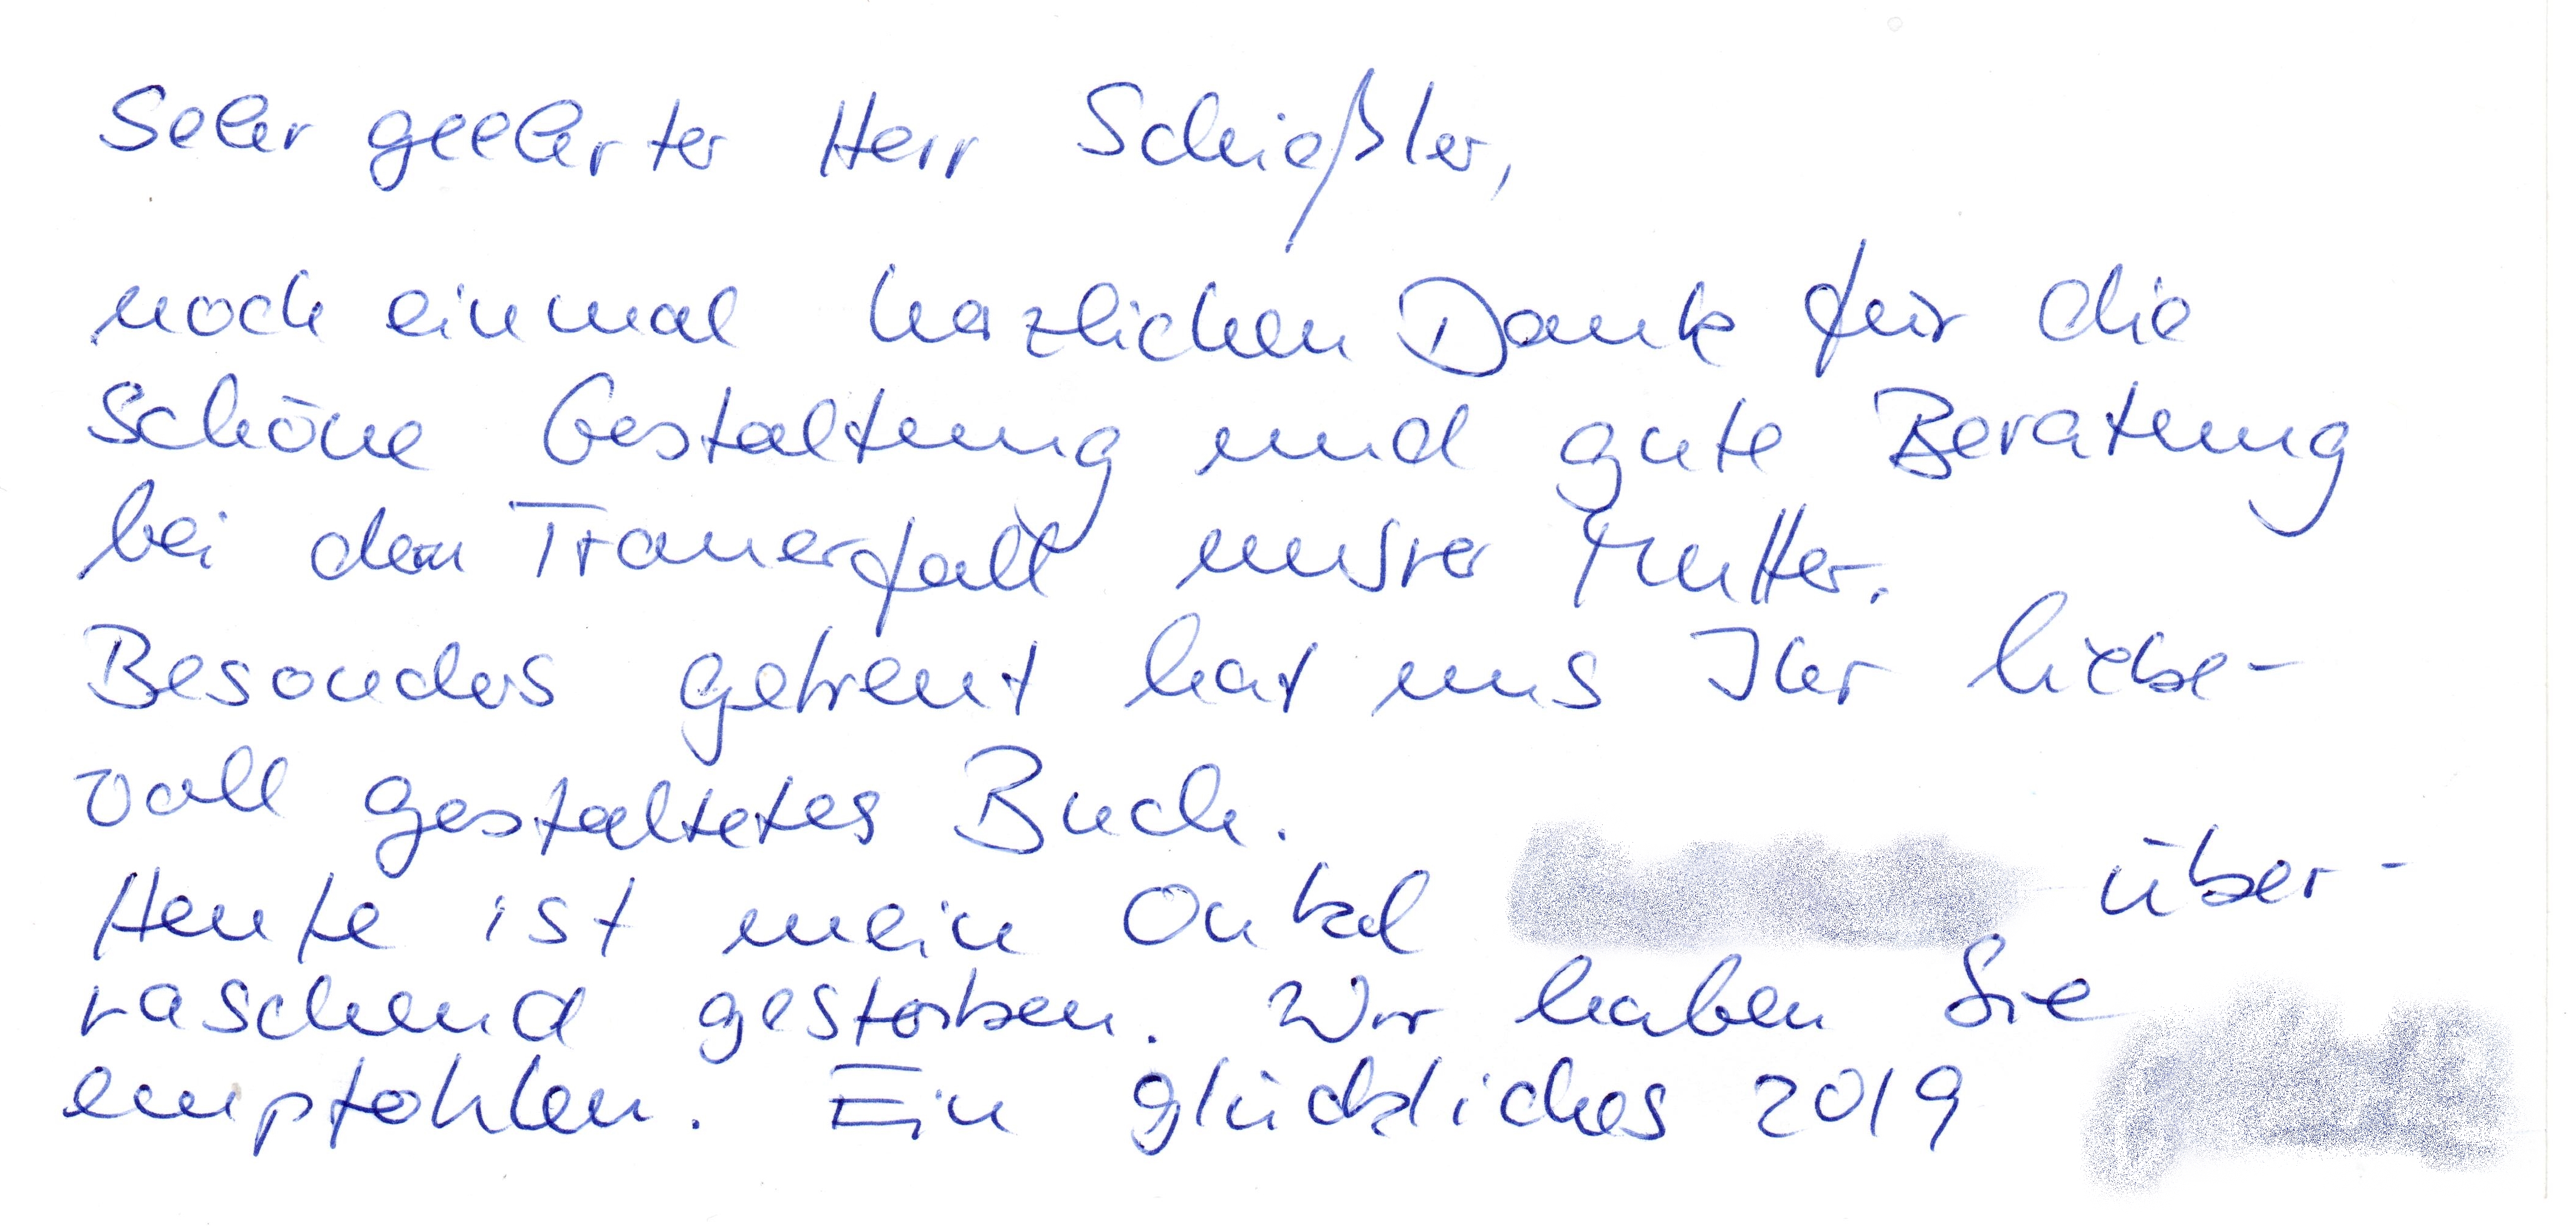 Sehr geehrter Herr Schießler,
noch einmal herzlichen Dank für die
schöne Gestaltung und gute Beratung
bei dem Trauerfall unsrer Mutter.
Besonders gefreut hat uns Ihr liebe-
voll gestaltetes Buch.
Heute ist mein Onkel über-
raschend gestorben. Wir haben Sie
empfohlen. Ein glückliches 2019